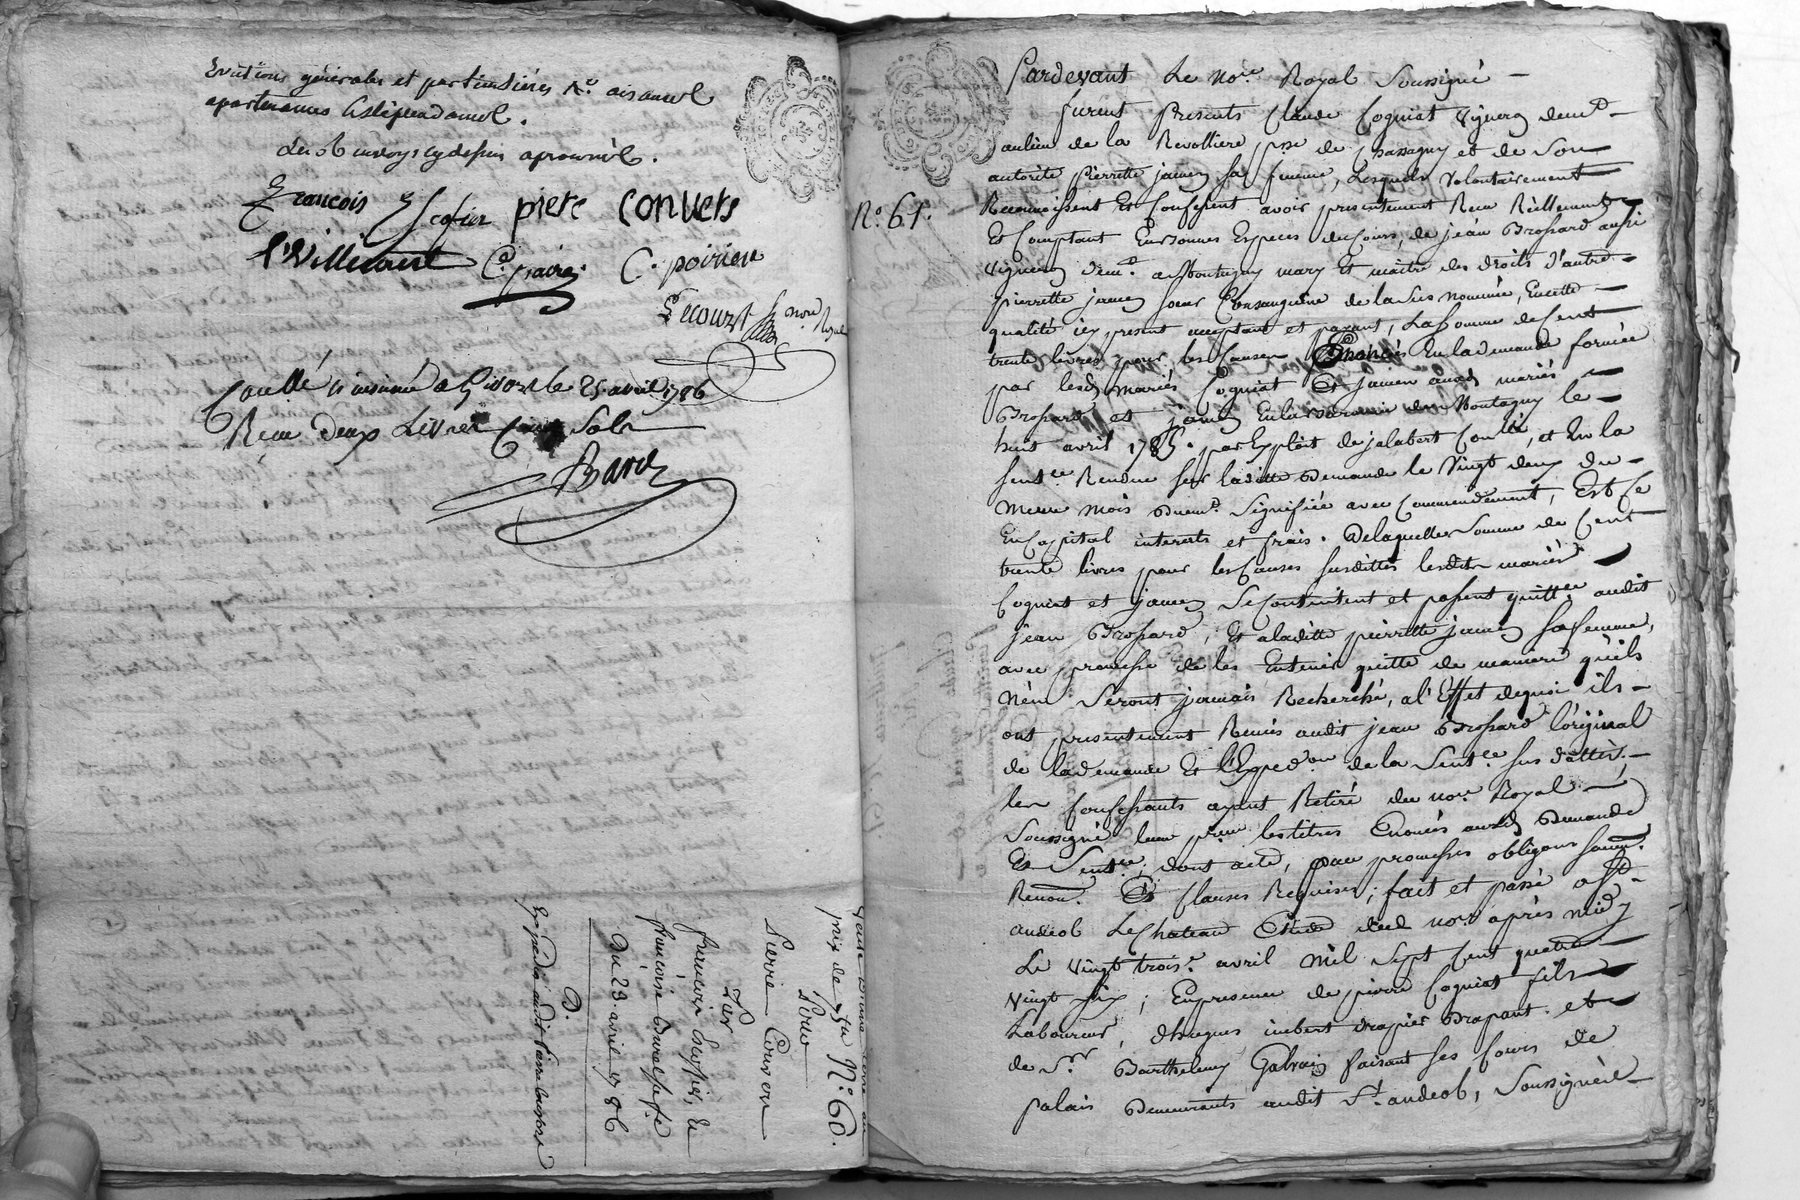 générales et particulières
apartenances
François Escofier piere convers
C. poirieu
Lecourt nore Royal
Conllé et insinué a Givors le 25 avril 1786
Reçu deux Livres Sols
prix de N.° 60.
Pour
Pierre Convers
Par
francois Escofier, &
françoise sa fe
Du 23 avril 1786
N.° 61.
Pardevant Le nore Royal Soussigné
furent Presents Claude Cogniat vigneron demt
au lieu de la Revolliere psse de Chassagny et de Son
autorité pierrette jamen sa femme, Lesquels volontairement
Reconnoissent et Confessent avoir presentement Reçu Réellement
Et Comptant En bonnes Especes de Cours, de jean Brossard aussi
vigneron demt a Montagny mary et maitre des droits d'autre
pierrette jamen soeur Consanguine de la Sus nommée, En cette
qualité icy present acceptant et payant, La Somme de Cent
trente livres pour les Causes Enoncés En la demande formée
par lesd mariés Cogniat Et jamen auxd mariés
Brossard et jamen En la de Montagny le
huit avril 1785. par Exploit de jalabert et En la
sentce Rendue sur laditte Demande le Vingt deux du
meme mois Signifiée avec Commandement, Et Ce
En Capital interests et frais. De laquelle Somme de Cent
trente livres pour les Causes susdittes lesdits mariés
Cogniat et jamen Se Contentent et passent quittce audit
jean Brossard, Et a laditte pierrette jamen sa femme,
avec promesse de les Entenir quitte de maniere qu'ils
n'en Seront jamais Recherché, a l'Effet de quoi ils
ont presentement Remis audit jean Brossard l'original
de la demande Et l'Expedon de la Sentce sus dattée,
les Confessants ayant Retiré du nore Royal
Soussigné les titres Enoncés auxd Demande
Et Sentce, dont acte, par promesses obligons soumn.
Renon. Et Clauses Requises; fait et passé a St
andeol Le Chateau Etude dud nore après midy
Le vingt trois.e avril Mil Sept Cent quatre
vingt Six; En presence de pierre Cogniat fils
Laboureur, d'hugues imbert drapier Drapant. et
de Sr Barthelemy Galvain faisant ses Cours de
palais Demeurants audit St. andeol, Soussignés